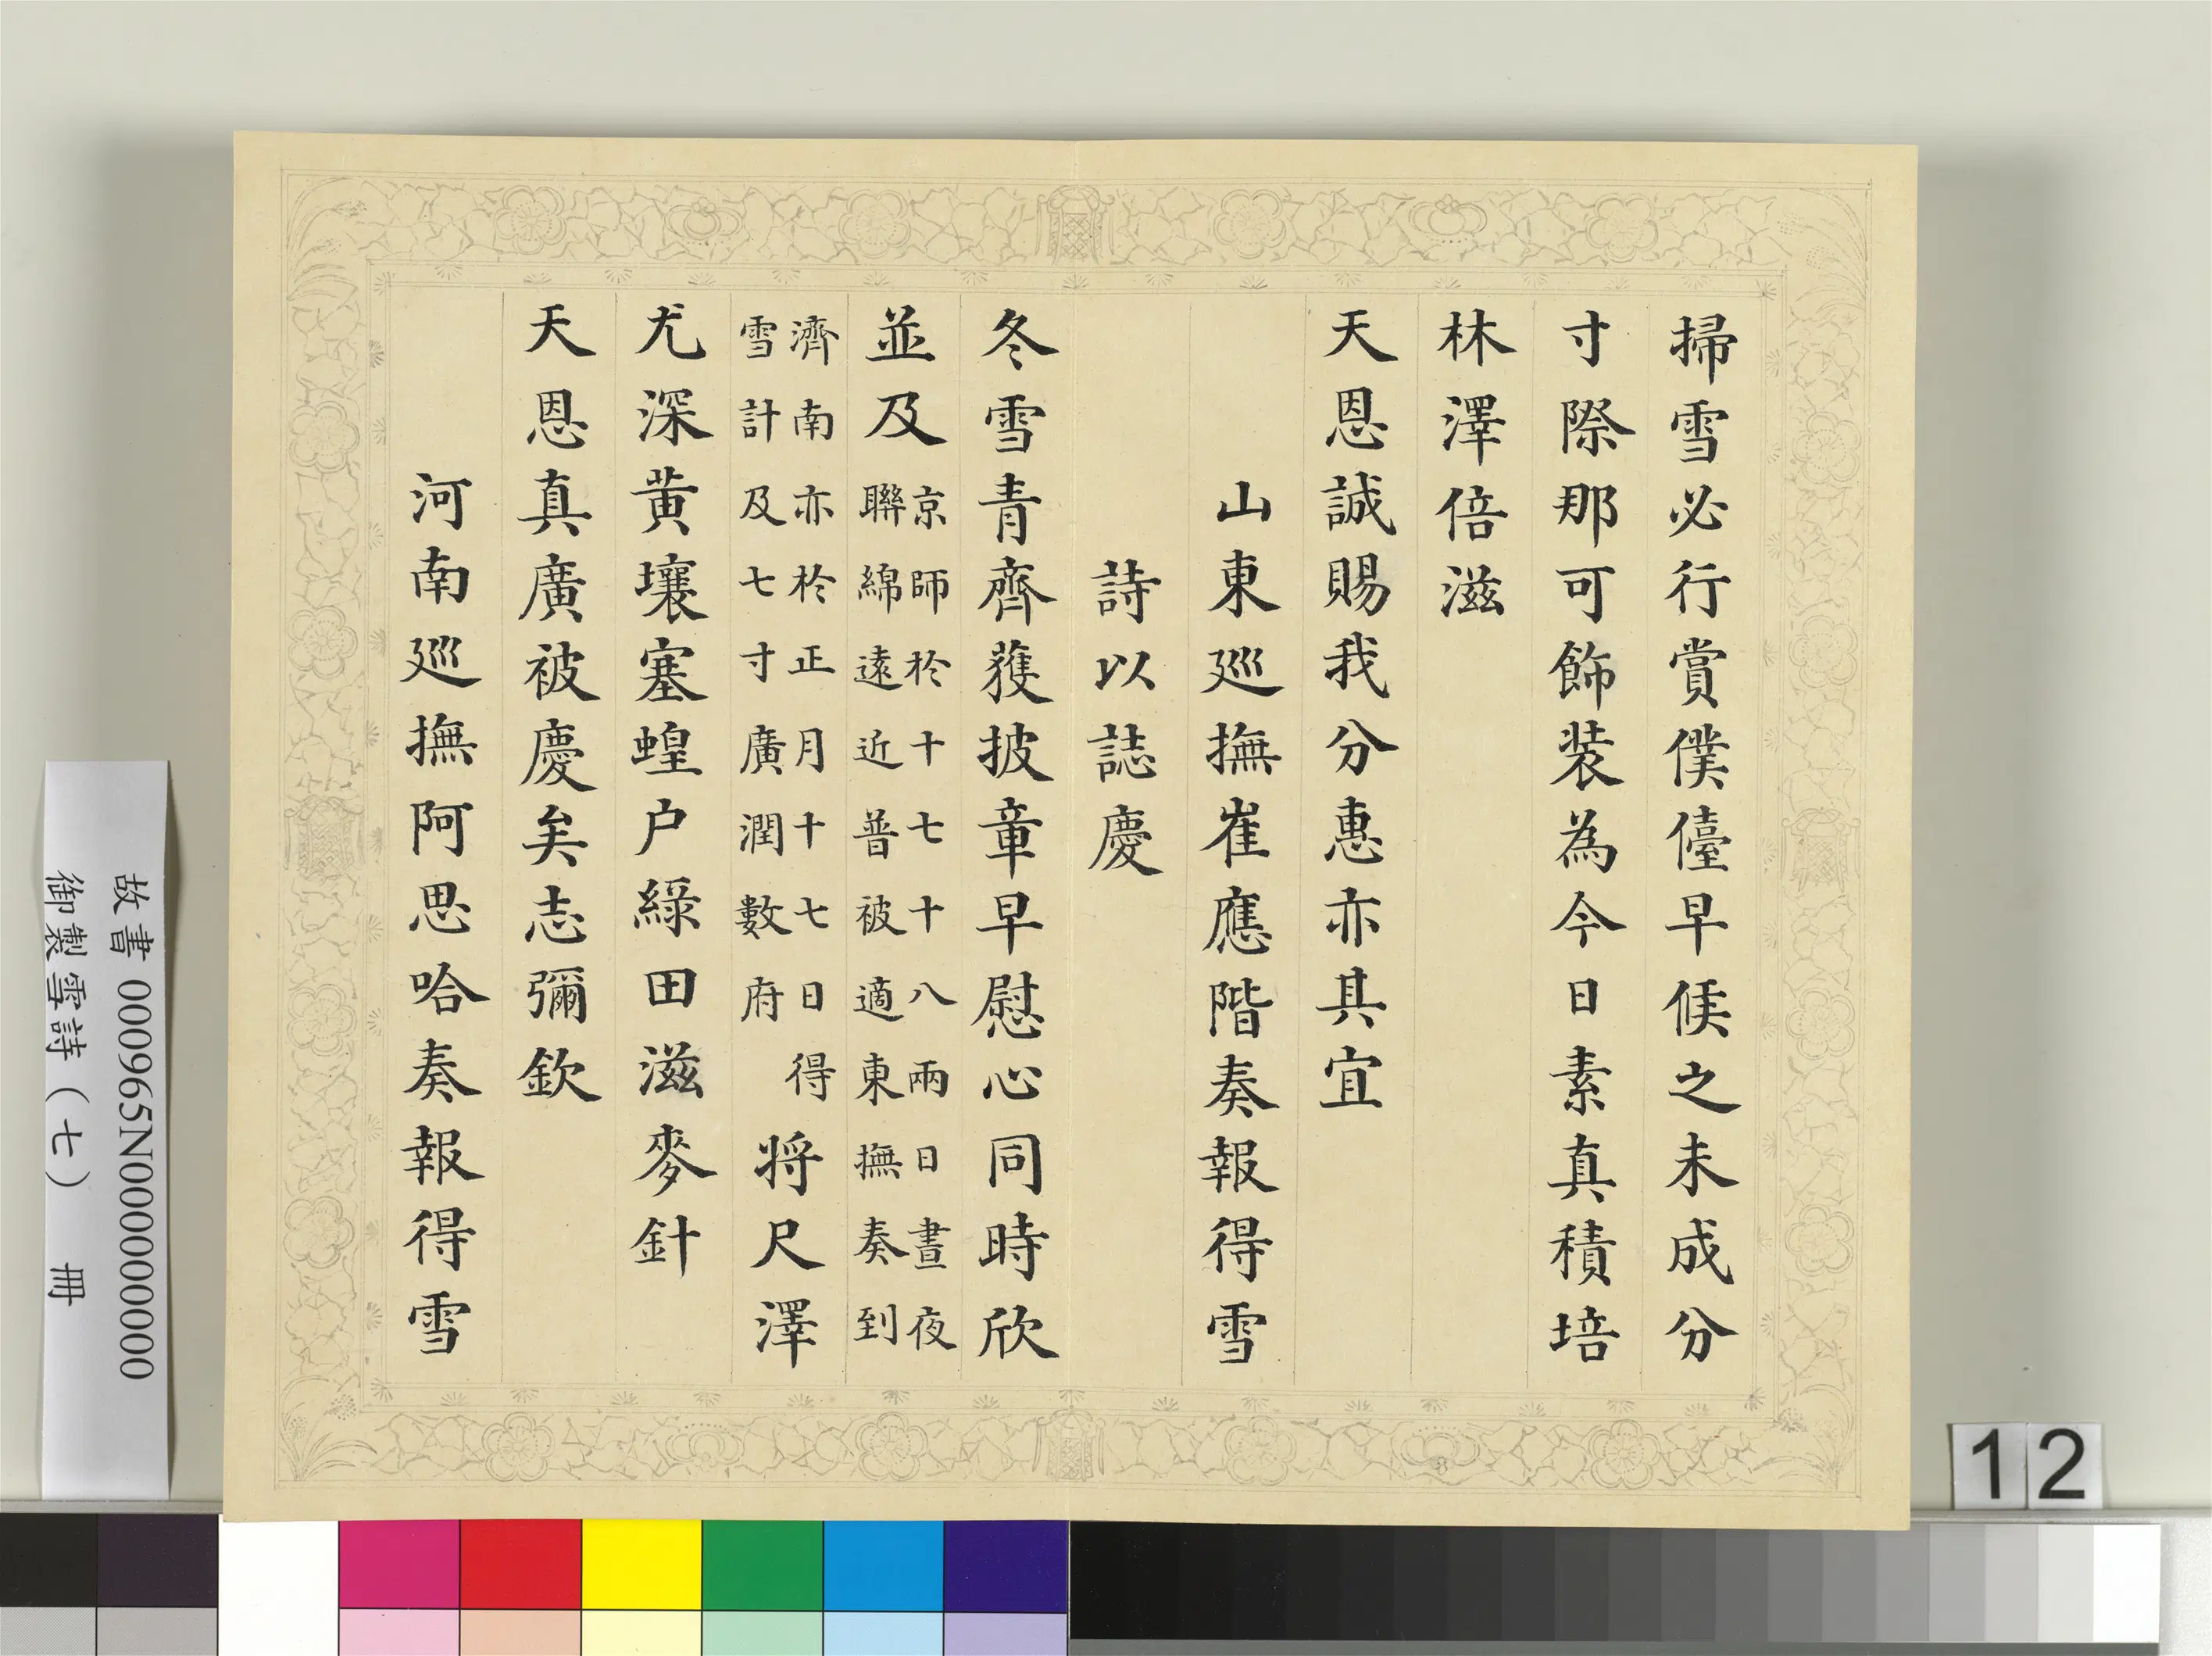 掃雪必行賞僕儓早候之未成分
寸際那可飾裝為今日素真積培
林澤倍滋
天恩誠賜我分惠亦其宜
山東巡撫崔應階奏報得雪
詩以誌慶
冬雪青齊獲披章早慰心同時欣
並及京師於十七十八兩日晝夜
聯綿遠近普被適東撫奏到
濟南亦於正月十七日得
雪計及七寸廣潤數府
將尺澤
尤深黃壤塞蝗户綠田滋麥針
天恩真廣被慶矣志彌欽
河南巡撫阿思哈奏報得雪
故書 000965N000000000
御製雪詩（七） 冊
12